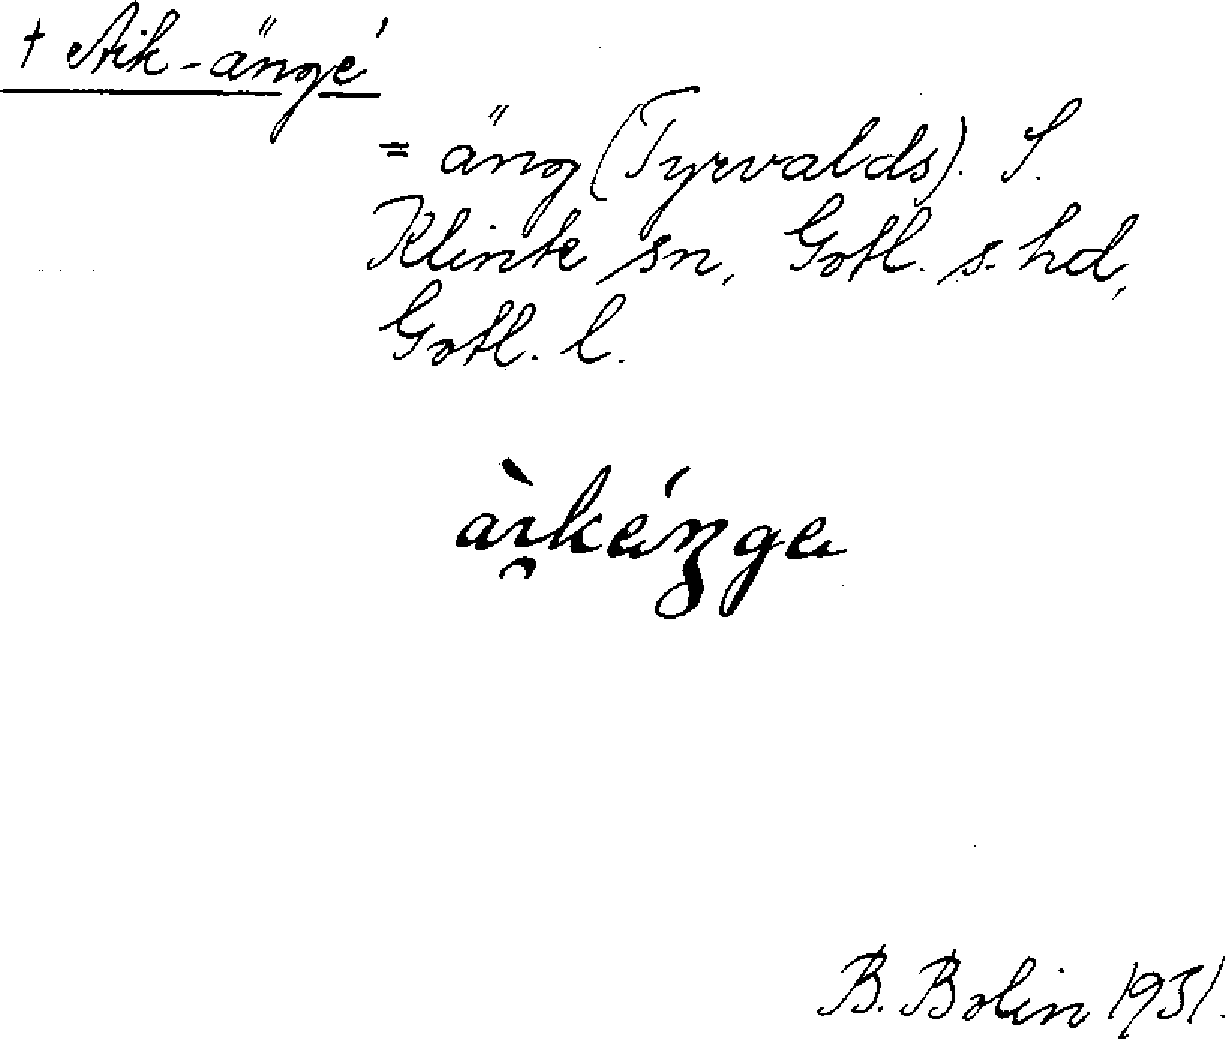 † Aik-änge'
= äng (Tyrvalds). S.
Klinte sn, Gotl. s. hd,
Gotl. l.
B. Bolin 1931.